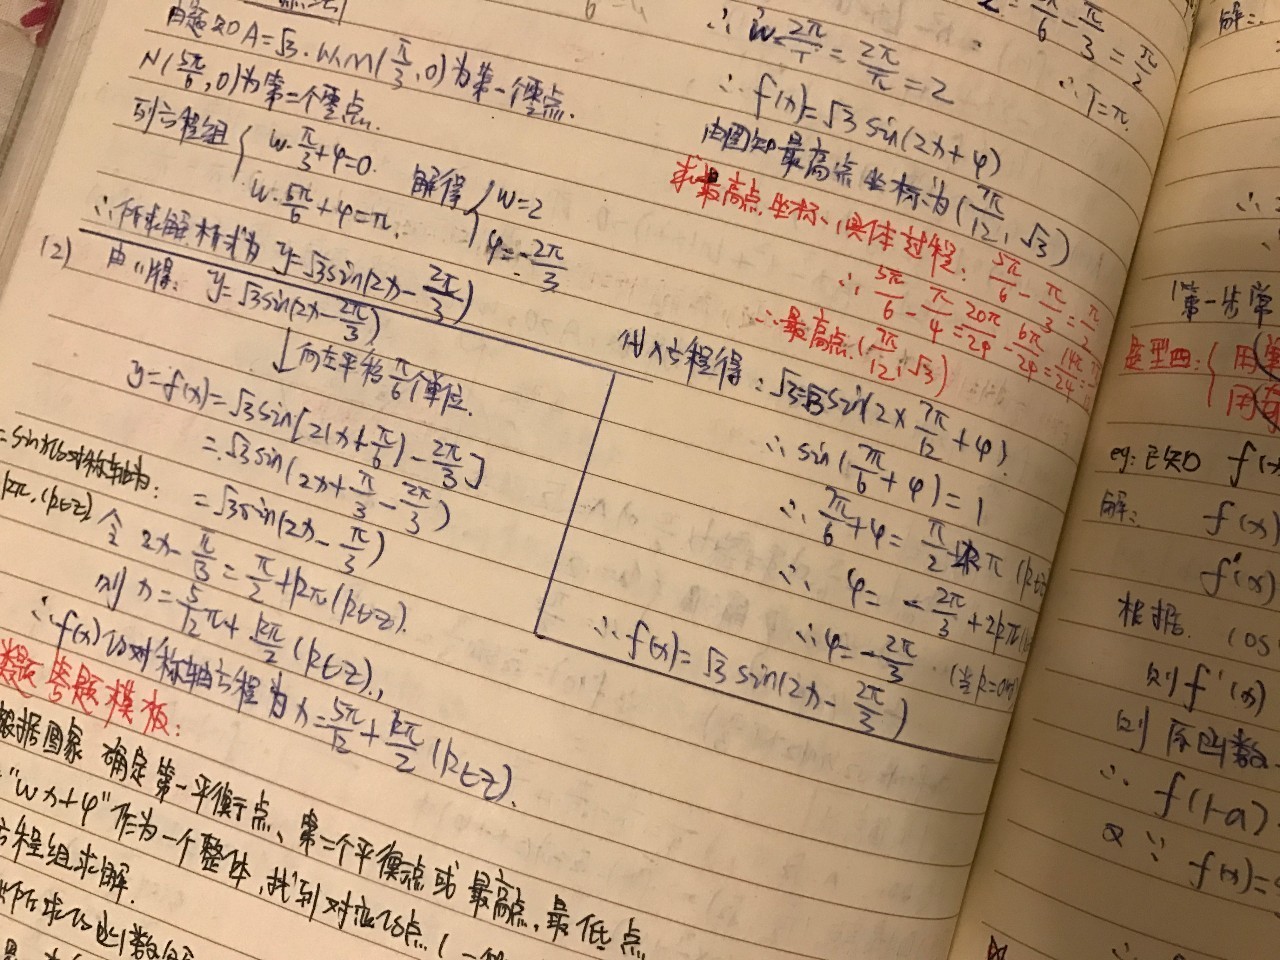 由题知 A=√3. 从M(π/3, 0)为第一个零点.
N(5π/6, 0)为第二个零点.
列方程组 { w·π/3+φ=0.
w·5π/6+φ=π.
解得 { w=2
φ=-2π/3
∴所求解析式为 y=√3sin(2x-2π/3)
(2) 由(1)得: y=√3sin(2x-2π/3)
↓向左平移π/6个单位.
y=f(x)=√3sin[2(x+π/6)-2π/3]
=√3sin(2x+π/3-2π/3)
=√3sin(2x-π/3)
=sinx的对称轴为:
kπ.(k∈Z)
令 2x-π/3=π/2+kπ(k∈Z).
则 x=5/12π+kπ/2(k∈Z).
∴f(x)的对称轴方程为x=5π/12+kπ/2(k∈Z).
答题模板:
根据图象 确定第一平衡点、第二个平衡点或 最高点,最低点
"wx+φ"作为一个整体,找到对应的点(
方程组求解.
所求的函数
π/6-π/3=π/2
∴T=π.
∴w=2π/T=2π/π=2
∴f(x)=√3sin(2x+φ)
由图知最高点坐标为(7π/12,√3)
求最高点坐标、具体过程: 5π/6-π/3=π/2
∴5π/6-π/4=20π/24-6π/24=14π/24=
∴最高点(7π/12,√3)
代入方程得: √3=√3sin(2×7π/12+φ).
∴sin(7π/6+φ)=1
∴7π/6+φ=π/2+2kπ (k∈Z
∴φ=-2π/3+2kπ(
∴φ=-2π/3.(当k=0时)
∴f(x)=√3sin(2x-2π/3)
解:
第一步常
题型四: { 用
用
eg: 已知 f(x
解: f(x)
f'(x)
根据. cos
则f'(x)
则 原函数
∴ f(1-a)
又∵ f(x)=